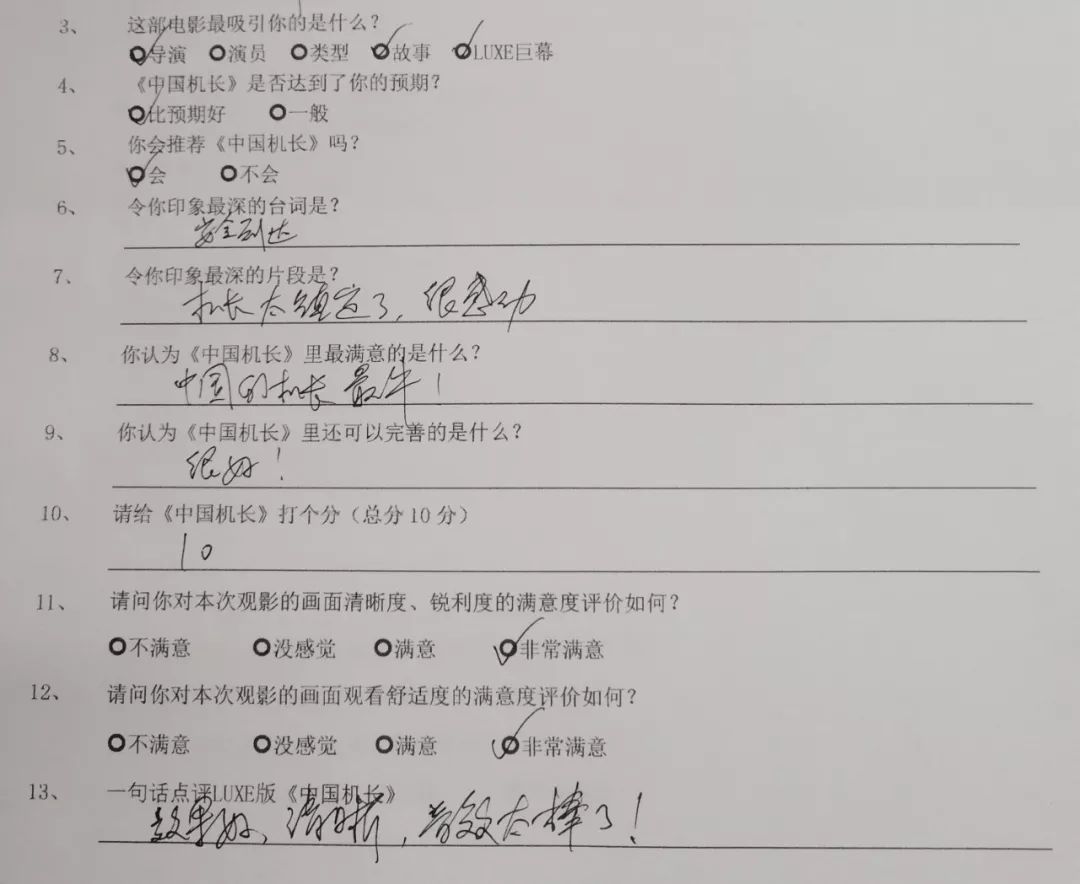 3、 这部电影最吸引你的是什么？
导演 演员 类型 故事 LUXE巨幕
4、 《中国机长》是否达到了你的预期？
比预期好 一般
5、 你会推荐《中国机长》吗？
会 不会
6、 令你印象最深的台词是？
安全到达
7、 令你印象最深的片段是？
机长太镇定了，很感动
8、 你认为《中国机长》里最满意的是什么？
中国的机长最牛！
9、 你认为《中国机长》里还可以完善的是什么？
很好！
10、 请给《中国机长》打个分（总分10分）
10
11、 请问你对本次观影的画面清晰度、锐利度的满意度评价如何？
不满意 没感觉 满意 非常满意
12、 请问你对本次观影的画面观看舒适度的满意度评价如何？
不满意 没感觉 满意 非常满意
13、 一句话点评LUXE版《中国机长》
效果好，清晰，音效太棒了！